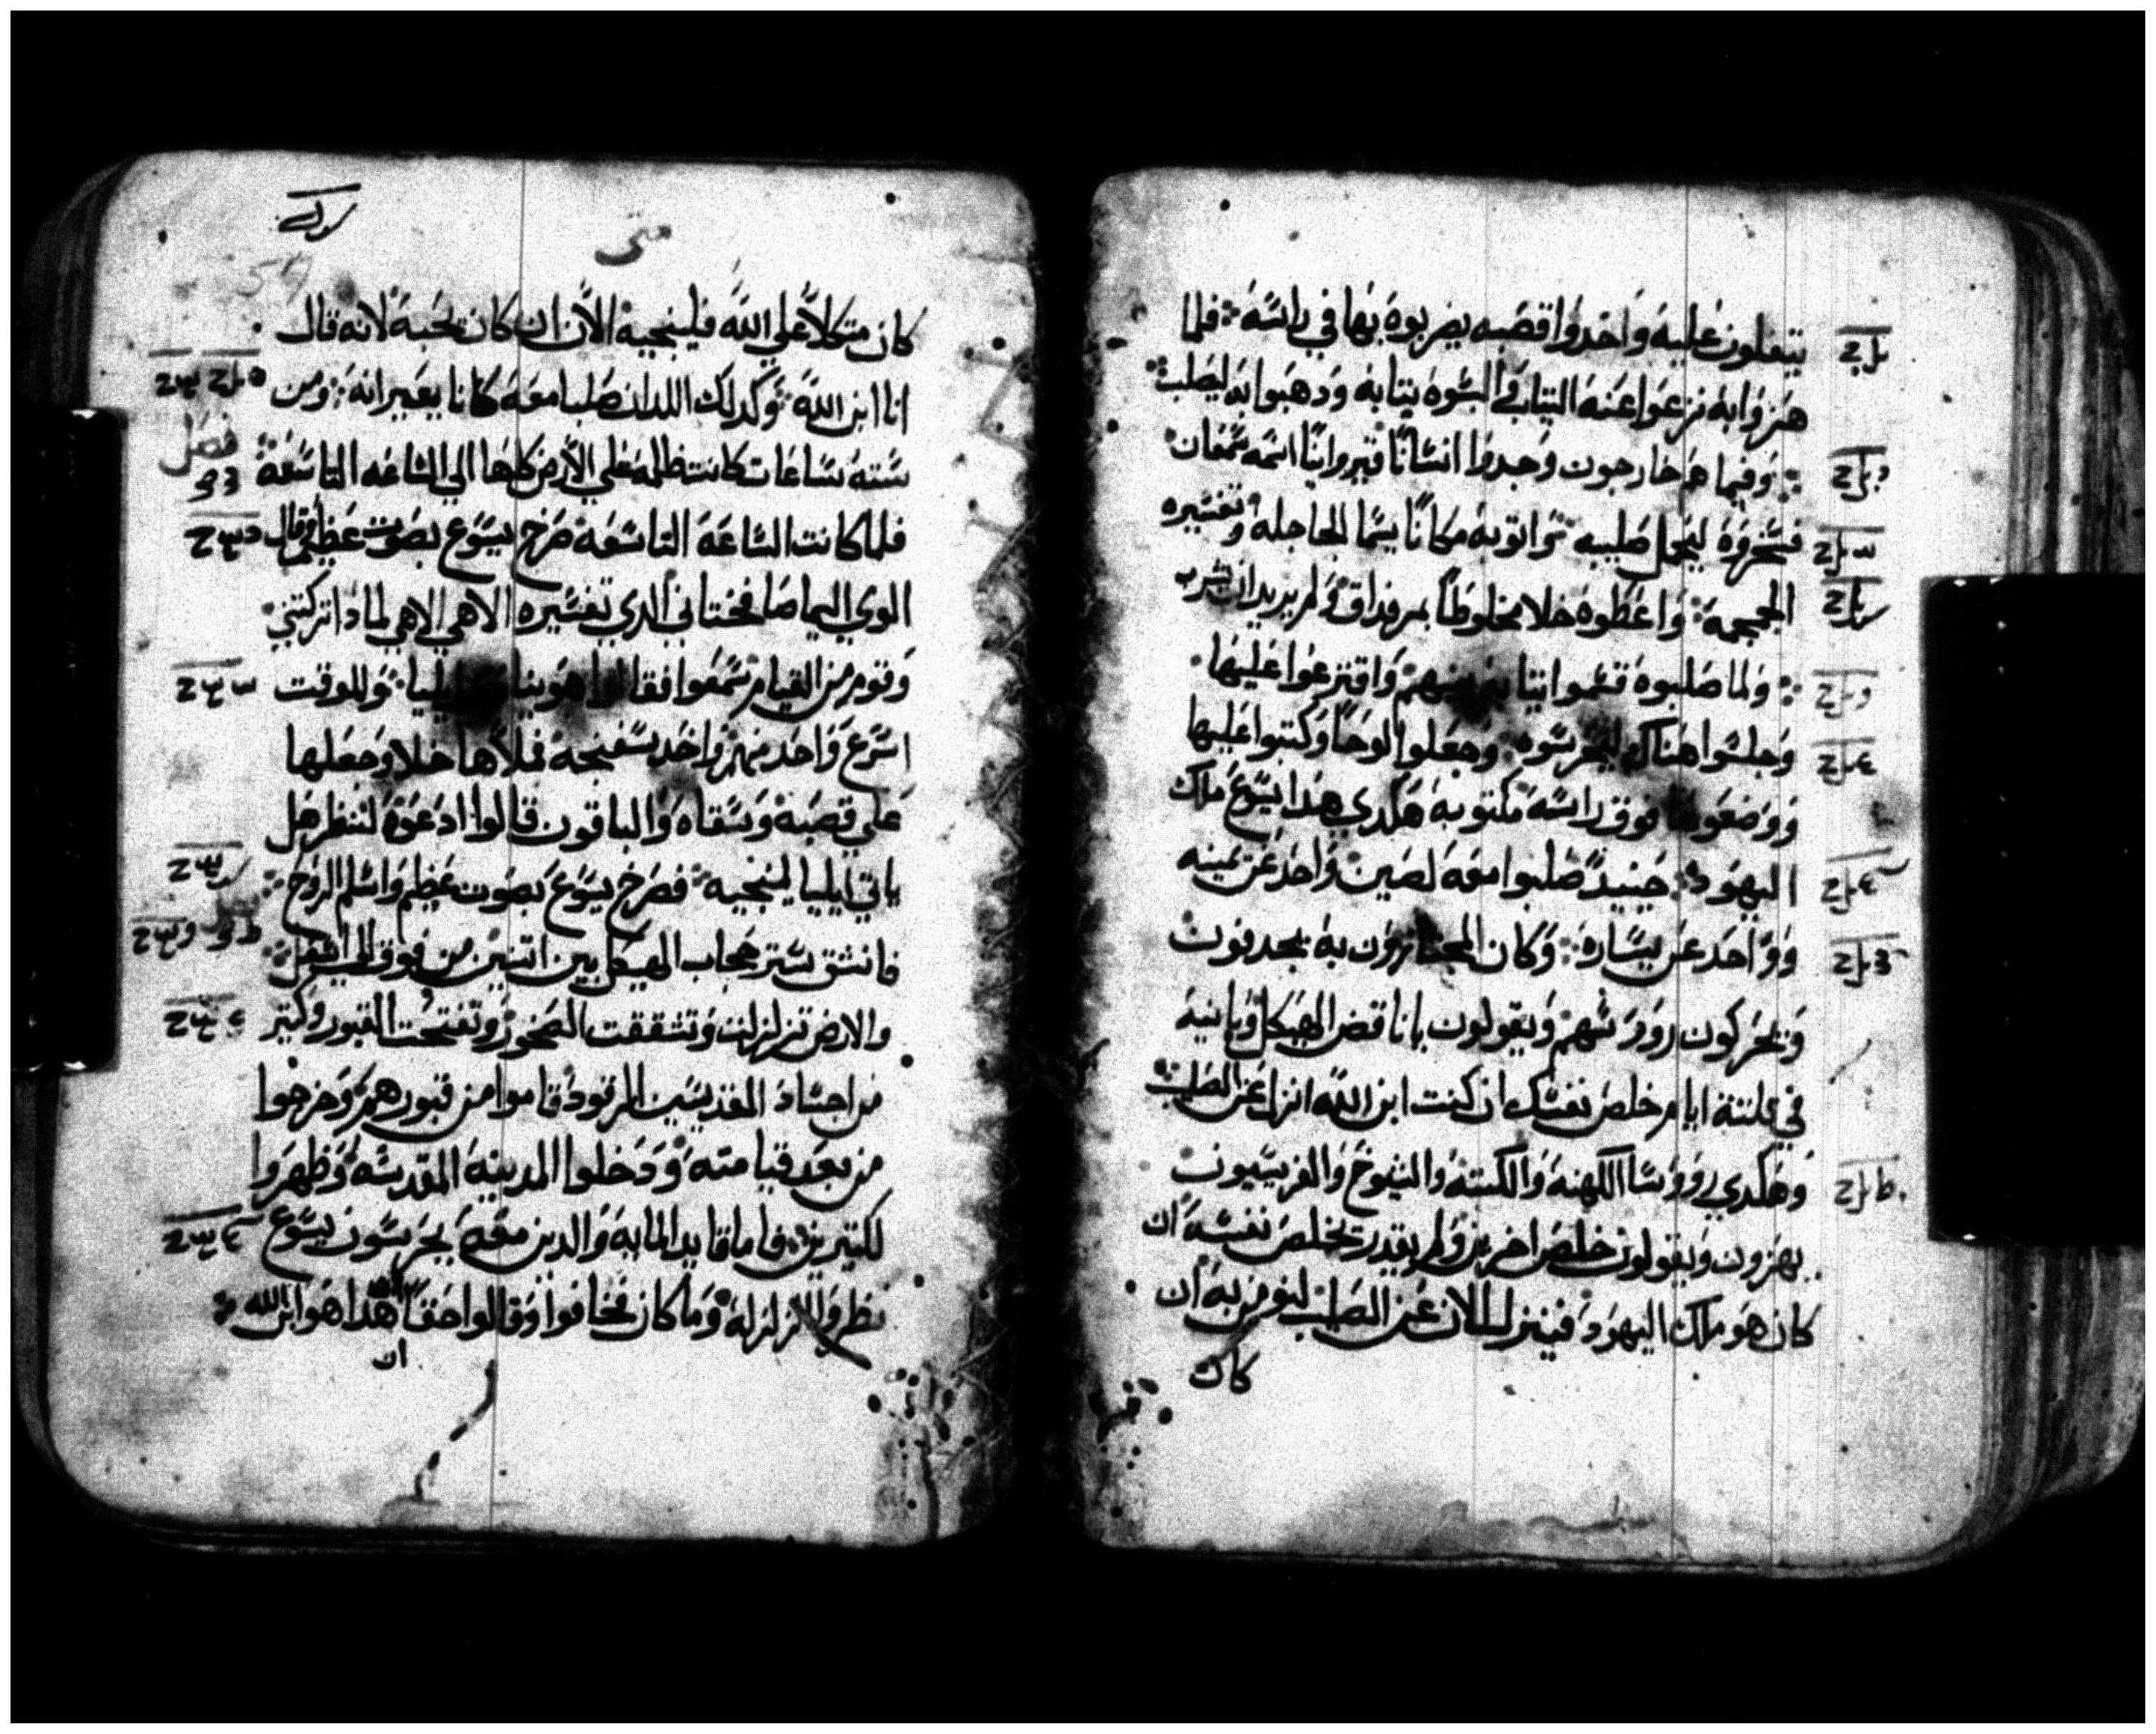 يتفلون عليه واخدوا قصبه يضربوه بها في راسه فلما
هزوا به نزعوا عنه التياب والبسوه تيابه ودهبوا به ليصلب
وفيما هم خارجون وجدوا انسانًا قيروانيًا اسمه سمعان
فسخروه ليحمل صليبه واتو به مكانًا يسما الجاجله وتفسيره
الجمجمة واعطوه خلا مخلوطًا بمر فداق ولم يريد ان يشرب
ولما صلبوه قسموا تيابه بينهم واقترعوا عليها
وجلسوا هناك ليحرسوه وجعلوا لوحًا وكتبوا عليها
ووضعوها فوق راسه مكتوبه هكدي هدا يسوع ملك
اليهود حينيدً صلبوا معه لصين واحد عن يمينه
وواحد عن يساره وكان المجتازون به يجدفون
ويحركون روورسهم ويقولون يا ناقض الهيكل وبانيه
في تلتة ايام خلص نفسك ان كنت ابن الله انزل عن الصليب
وهكدي روورسا الكهنه والكتبه والشيوخ والفريسيون
يهزون ويقولون خلص اخرين ولم يقدر يخلص نفسه ان
كان هو ملك اليهود فينزل الان عن الصليب لنومن به ان
كان
متى
كان متكلاً على الله فلينجيه الان ان كان يحبه لانه قال
انا ابن الله وكدلك اللدان صلبا معه كانا يعيرانه ومن
سته ساعات كانت ظلمه علي الارض كلها الي الساعه التاسعة
فصل
فلما كانت الساعه التاسعه صرخ يسوع بصوت عظيم وقال
الوي اليما صافختاني الدي تفسيره الاهي الاهي لمادا تركتني
وقوم من القيام سمعوا فقالوا هوينا ايليا وللوقت
اسرع واحد منهم واخد سفنجه فملاها خلا وجعلها
علي قصبه وسقاه والباقون قالوا ادعوه لننظر هل
ياتي ايليا لينجيه فصرخ يسوع بصوت عظيم واسلم الروح
فانشق ستر حجاب الهيكل بين اتنين من فوق الي اسفل
والارض تزلزلت وتشققت الصخور وتفتحت القبور وكتير
من اجساد القديسين المرقود قاموا من قبورهم وخرجوا
من بعد قيامته ودخلوا المدينه المقدسه وظهروا
لكتيرين فاما قايد المايه والدين معه يحرسون يسوع
نظروا الزلزله وما كان فخافوا وقالوا حقًا هدا هو ابن الله
ان